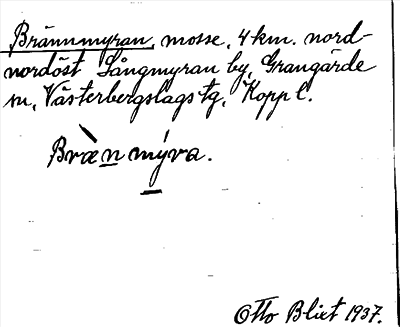 Brännmyran, mosse, 4 km. nord-
nordöst Sångmyran by, Grangärde
sn, Västerbergslags tg, Kopp l.
Bræn mýra.
Otto Blixt 1937.